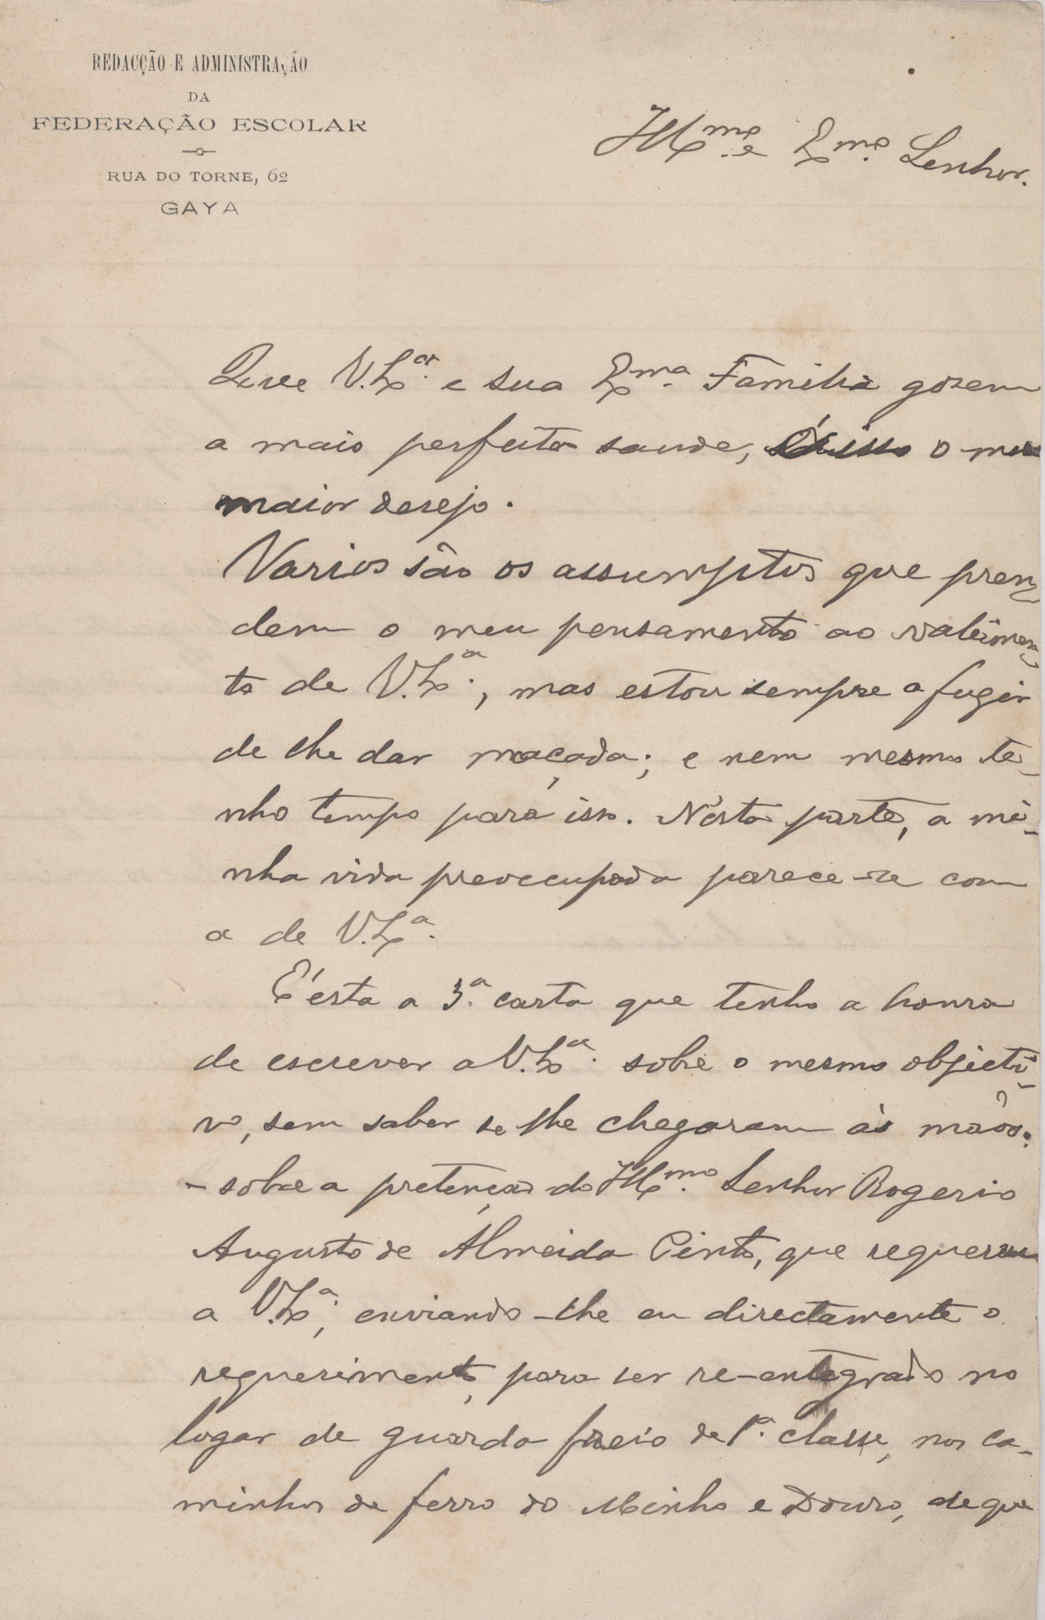 REDACÇÃO E ADMINISTRAÇÃO
DA
FEDERAÇÃO ESCOLAR
RUA DO TORNE, 62
GAYA
Illmo. e Exmo. Senhor.
Que V. Exa. e sua Exma. Familia gozem
a mais perfeita saude, é isso o meu
maior desejo.
Varios são os assumptos que pren-
dem o meu pensamento ao valimen-
to de V. Exa., mas estou sempre a fugir
de lhe dar maçada; e nem mesmo te-
nho tempo para isso. N'esta parte, a mi-
nha vida preoccupada parece-se com
a de V. Exa.
É esta a 3.a carta que tenho a honra
de escrever a V. Exa. sobre o mesmo objecti-
vo, sem saber se lhe chegaram às mãos:
- sobre a pretenção do Illmo. Senhor Rogerio
Augusto de Almeida Pinto, que requereu
a V. Exa., enviando-lhe eu directamente o
requerimento, para ser re-entegrado no
logar de guarda freio de 1.a classe, nos ca-
minhos de ferro do Minho e Douro, de que